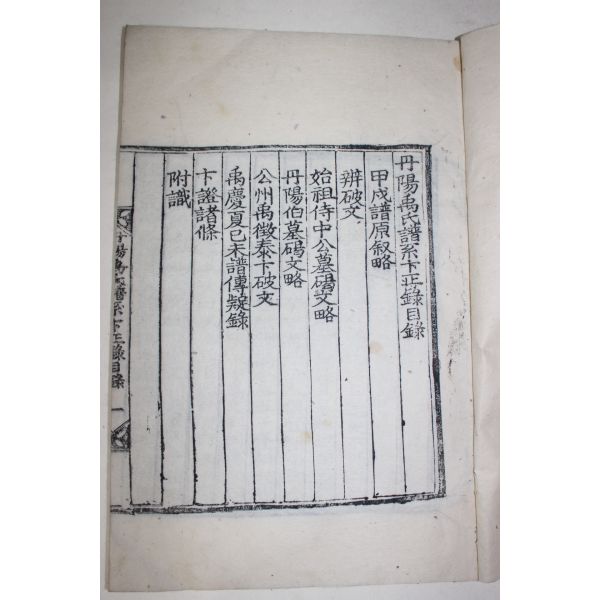 丹陽禹氏譜系卞正錄目錄
甲戌譜原叙略
辨破文
始祖侍中公墓碣文略
丹陽伯墓碣文略
公州禹徵泰卞破文
禹慶夏己未譜傳疑錄
卞證諸條
附識
丹陽禹氏譜系卞正錄目錄 一